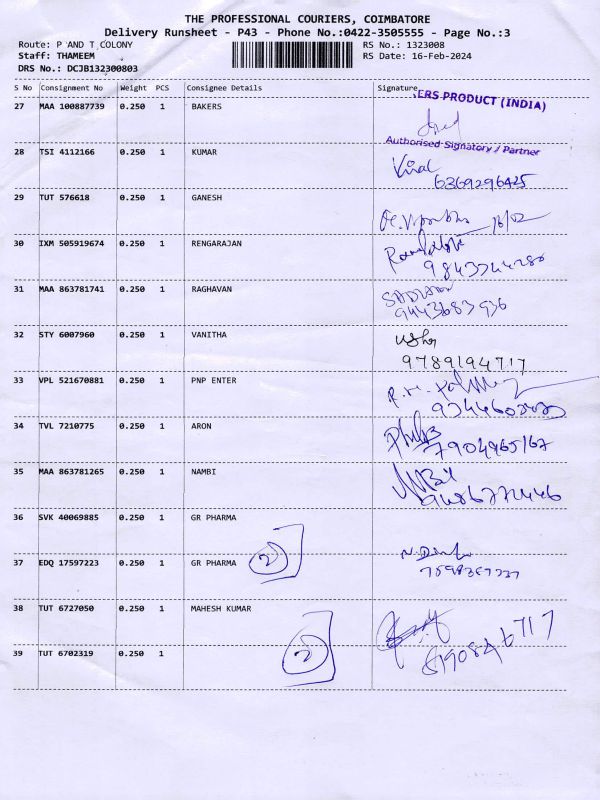 THE PROFESSIONAL COURIERS, COIMBATORE
Delivery Runsheet - P43 - Phone No.:0422-3505555 - Page No.:3
Route: P AND T COLONY RS No.: 1323008
Staff: THAMEEM RS Date: 16-Feb-2024
DRS No.: DCJB132300803
S No Consignment No Weight PCS Consignee Details Signature
ERS PRODUCT (INDIA)
27 MAA 100887739 0.250 1 BAKERS
Authorised Signatory / Partner
28 TSI 4112166 0.250 1 KUMAR
6369296425
29 TUT 576618 0.250 1 GANESH
16/02
30 IXM 505919674 0.250 1 RENGARAJAN
31 MAA 863781741 0.250 1 RAGHAVAN
9443683936
32 STY 6007960 0.250 1 VANITHA Usha
9789194717
33 VPL 521670881 0.250 1 PNP ENTER
34 TVL 7210775 0.250 1 ARON
7904965167
35 MAA 863781265 0.250 1 NAMBI
36 SVK 40069885 0.250 1 GR PHARMA
2
37 EDQ 17597223 0.250 1 GR PHARMA
38 TUT 6727050 0.250 1 MAHESH KUMAR
2
39 TUT 6702319 0.250 1